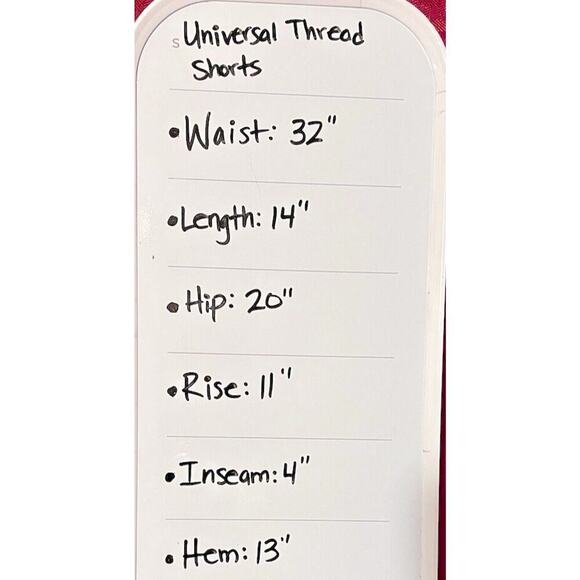 S Universal Thread
Shorts
• Waist: 32"
• Length: 14"
• Hip: 20"
• Rise: 11"
• Inseam: 4"
• Hem: 13"